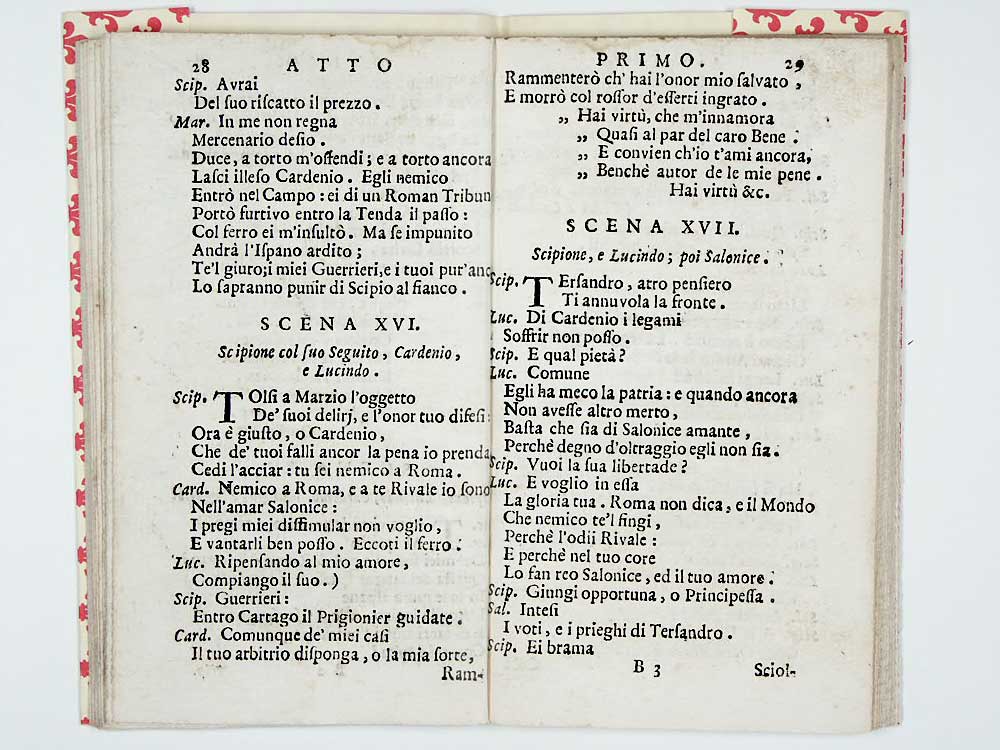 28 ATTO
Scip. Avrai
Del ſuo riſcatto il prezzo.
Mar. In me non regna
Mercenario deſio.
Duce, a torto m'offendi; e a torto ancora
Laſci illeſo Cardenio. Egli nemico
Entrò nel Campo: ei di un Roman Tribun
Portò furtivo entro la Tenda il paſſo:
Col ferro ei m'inſultò. Ma ſe impunito
Andrà l'Iſpano ardito;
Te'l giuro; i miei Guerrieri, e i tuoi pur'anc
Lo ſapranno punir di Scipio al fianco.
SCENA XVI.
Scipione col ſuo Seguito, Cardenio,
e Lucindo.
Scip. TOlſi a Marzio l'oggetto
De' ſuoi delirj, e l'onor tuo difeſi:
Ora è giuſto, o Cardenio,
Che de' tuoi falli ancor la pena io prenda
Cedi l'acciar: tu ſei nemico a Roma.
Card. Nemico a Roma, e a te Rivale io ſono
Nell'amar Salonice:
I pregi miei diſſimular non voglio,
E vantarli ben poſſo. Eccoti il ferro.
Luc. Ripenſando al mio amore,
Compiango il ſuo.)
Scip. Guerrieri:
Entro Cartago il Prigionier guidate.
Card. Comunque de' miei caſi
Il tuo arbitrio diſponga, o la mia ſorte,
Ram-
PRIMO. 29
Rammenterò ch' hai l'onor mio ſalvato,
E morrò col roſſor d'eſſerti ingrato.
„ Hai virtù, che m'innamora
„ Quaſi al par del caro Bene:
„ E convien ch'io t'ami ancora,
„ Benchè autor de le mie pene.
Hai virtù &c.
SCENA XVII.
Scipione, e Lucindo; poi Salonice.
Scip. TErſandro, atro penſiero
Ti annuvola la fronte.
Luc. Di Cardenio i legami
Soffrir non poſſo.
Scip. E qual pietà?
Luc. Comune
Egli ha meco la patria: e quando ancora
Non aveſſe altro merto,
Baſta che ſia di Salonice amante,
Perchè degno d'oltraggio egli non ſia.
Scip. Vuoi la ſua libertade?
Luc. E voglio in eſſa
La gloria tua. Roma non dica, e il Mondo
Che nemico te'l fingi,
Perchè l'odii Rivale:
E perchè nel tuo core
Lo fan reo Salonice, ed il tuo amore.
Scip. Giungi opportuna, o Principeſſa.
Sal. Inteſi
I voti, e i prieghi di Terſandro.
Scip. Ei brama
B 3 Sciol-